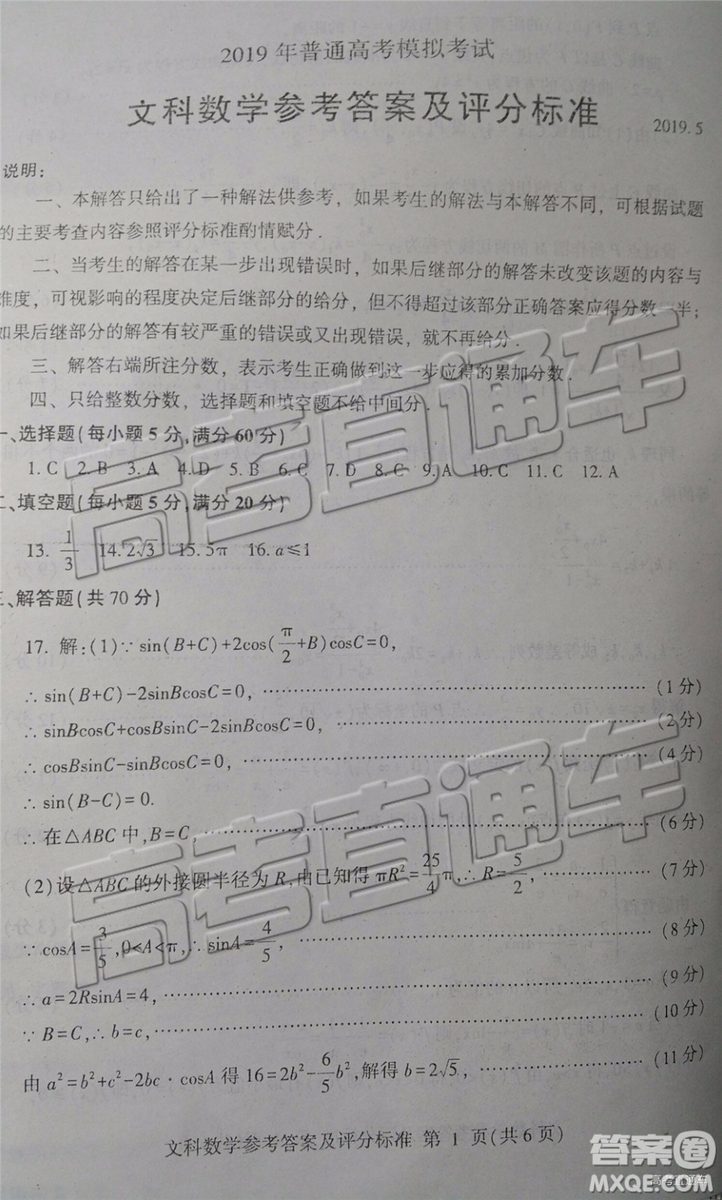 2019 年普通高考模拟考试
文科数学参考答案及评分标准
2019.5
说明:
一、本解答只给出了一种解法供参考，如果考生的解法与本解答不同，可根据试题
的主要考查内容参照评分标准酌情赋分.
二、当考生的解答在某一步出现错误时，如果后继部分的解答未改变该题的内容与
难度，可视影响的程度决定后继部分的给分，但不得超过该部分正确答案应得分数一半;
如果后继部分的解答有较严重的错误或又出现错误，就不再给分.
三、解答右端所注分数，表示考生正确做到这一步应得的累加分数.
四、只给整数分数，选择题和填空题不给中间分.
一、选择题(每小题5分,满分60分)
1.C 2.B 3.A 4.D 5.B 6.C 7.D 8.C 9.A 10.C 11.C 12.A
二、填空题(每小题5分,满分20分)
13. 1/3 14.2√3 15.5π 16.a≤1
三、解答题(共70分)
17. 解:(1)∵ sin(B+C)+2cos(π/2+B)cosC=0,
∴ sin(B+C)-2sinBcosC=0, ……(1分)
∴ sinBcosC+cosBsinC-2sinBcosC=0, ……(2分)
∴ cosBsinC-sinBcosC=0, ……(4分)
∴ sin(B-C)=0.
∴ 在△ABC中,B=C, ……(6分)
(2)设△ABC的外接圆半径为R,由已知得 πR²=25/4π,∴ R=5/2, ……(7分)
∵ cosA=3/5,0<A<π,∴ sinA=4/5, ……(8分)
∴ a=2RsinA=4, ……(9分)
∵ B=C,∴ b=c, ……(10分)
由 a²=b²+c²-2bc·cosA 得 16=2b²-6/5b²,解得 b=2√5, ……(11分)
文科数学参考答案及评分标准 第 1 页(共6页)
高考直通车
高考直通车
答案圈
MXQE.COM